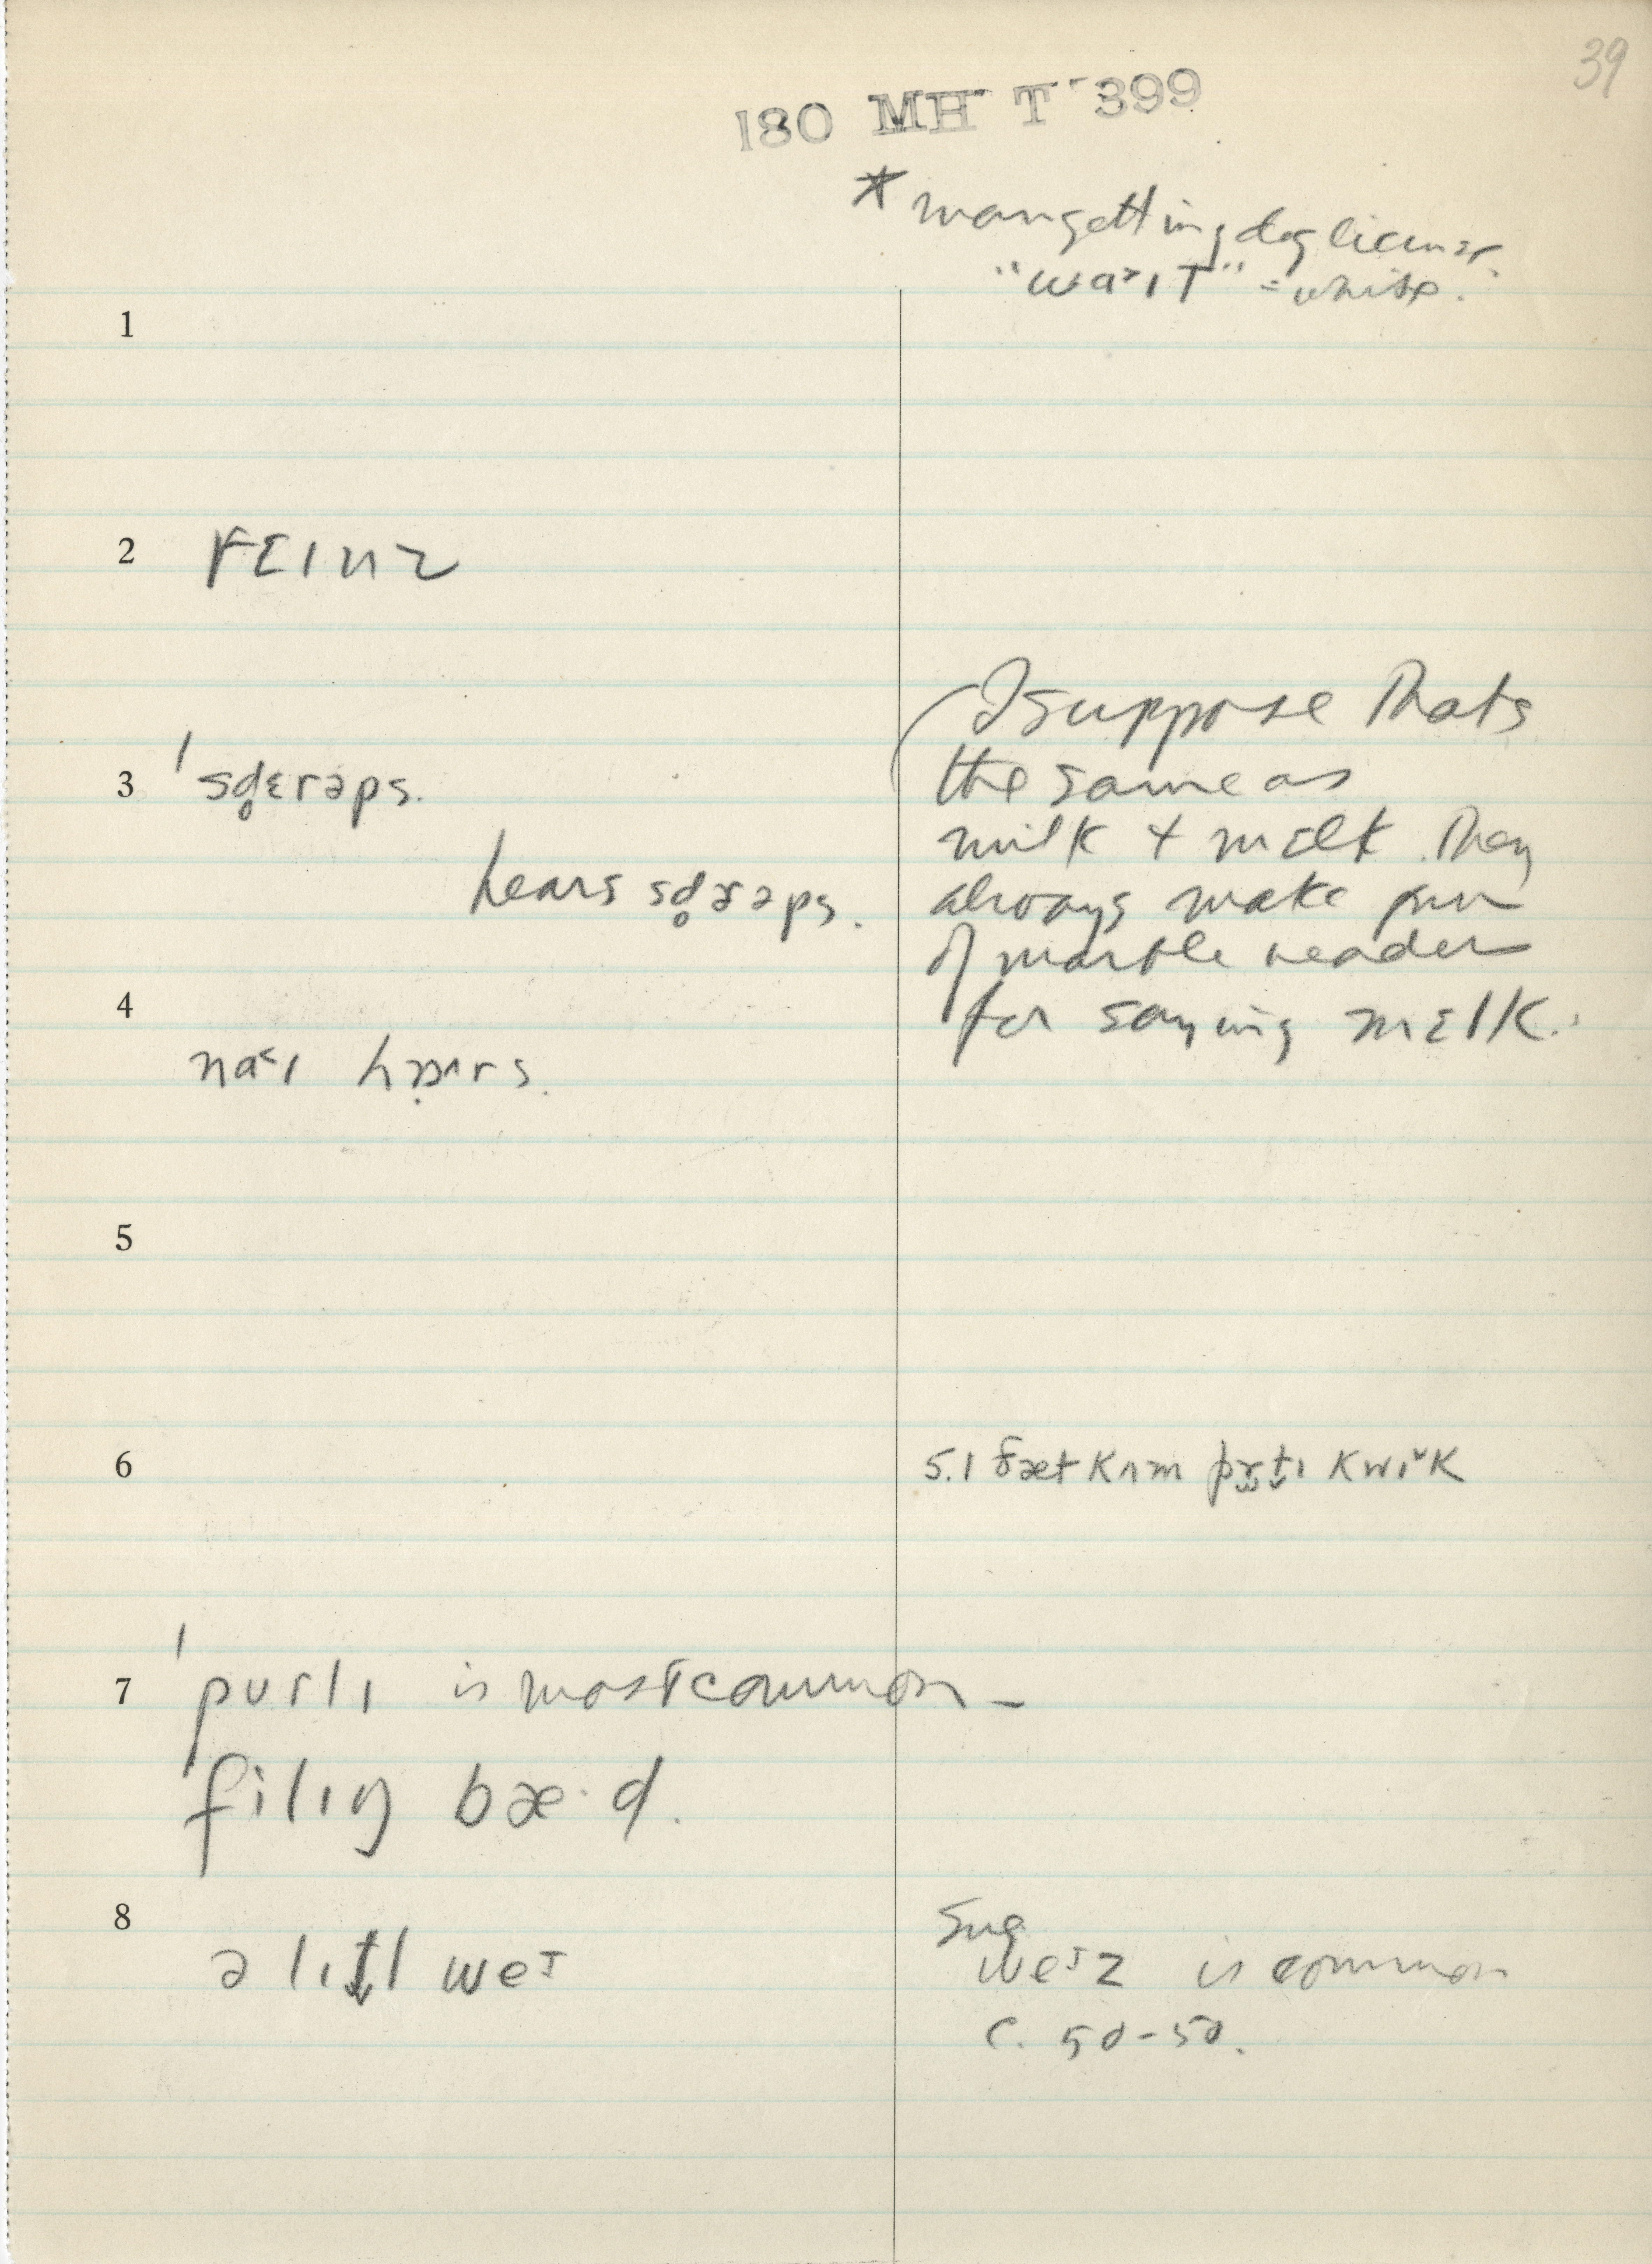 39
180 MH T 399
* man getting dog license
"wa˃ıT" = white.
1
2 rɛınz
3 ˈsd̥ɛrəps.
hears sd̥ərəps.
(I suppose thats
the same as
milk + mɛlk. They
always make fun
of marble header
for saying mɛlk.
4
na˂ı
5
6 5.1 ðæt kʌm kwı˅k
7 ˈpurlı is most common –
filıŋ bæ·d.
8 ə lıt̬l we
Sug
z is common
c. 50-50.